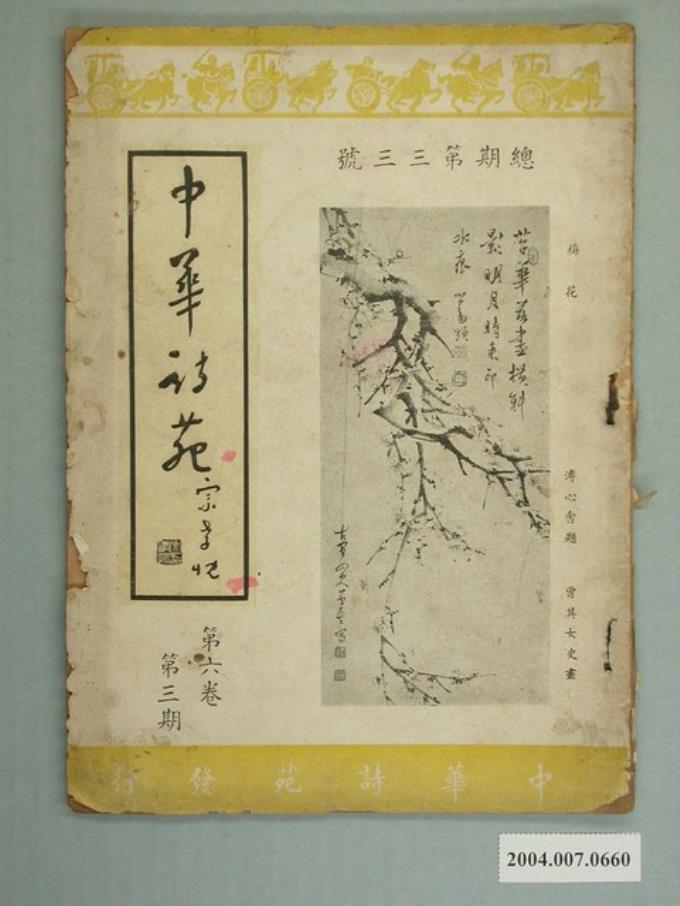 總期第三三號
梅花
溥心畬題
曾其女史畫
中華詩苑
宗孝忱
第六卷
第三期
影明月時來印
水痕
中華詩苑發行
2004.007.0660